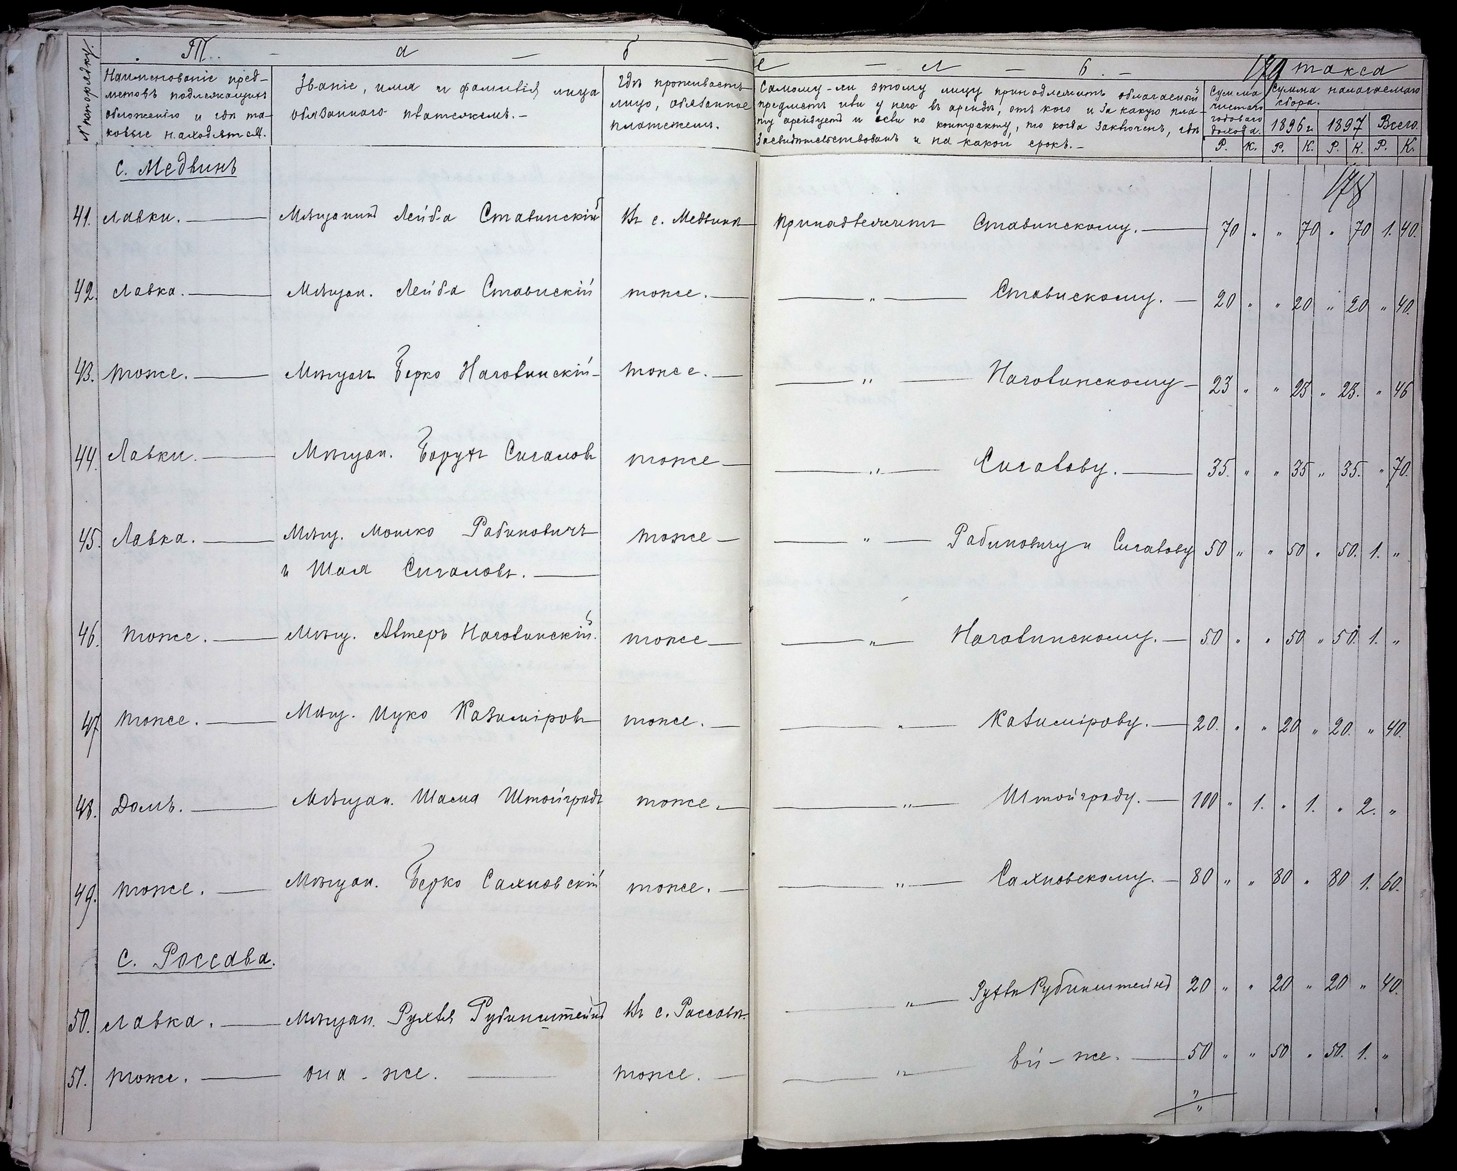 Т - а - б - е - л - ь. -
№ по порядку.
Наименованіе пред-
метовъ подлежащихъ
обложенію и гдѣ та-
ковые находятся.
Званіе, имя и фамилія лица
обязаннаго платежемъ.-
Гдѣ проживаетъ
лицо, обязанное
платежемъ.
Самому-ли этому лицу принадлежитъ облагаемый
предметъ или у него въ арендѣ, отъ кого и за какую пла-
ту арендуетъ и если по контракту, то когда заключенъ, гдѣ
засвидѣтельствованъ и на какой срокъ.-
Сумма
чистаго
годового
дохода.
Р. К.
такса
Сумма налагаемаго
сбора.
1896 г. 1897 Всего.
Р. К. Р. К. Р. К.
178
с. Медвинъ
41. Лавки. Мѣщанинъ Лейба Ставинскій Въ с. Медвинѣ Принадлежитъ Ставинскому. 70 " " 70 " 70 1. 40.
42. Лавка. Мѣщан. Лейба Ставискій тоже. " Ставискому. 20 " " 20 " 20 " 40.
43. тоже. Мѣщан. Берко Наговинскій тоже. " Наговинскому 23 " " 23 " 23. " 46
44. Лавки. Мѣщан. Борухъ Сигаловъ тоже " Сигалову. 35. " " 35 " 35. " 70.
45. Лавка. Мѣщ. Мошко Рабиновичъ тоже " Рабиновичу и Сигалову 50 " " 50 " 50. 1. "
и Шая Сигаловъ.
46. тоже. Мѣщ. Автеръ Наговинскій. тоже " Наговинскому. 50 " " 50 " 50. 1. "
47. тоже. Мѣщ. Ицко Казиміровъ тоже. " Казимірову. 20. " " 20 " 20. " 40.
48. Домъ. Мѣщан. Шама Штойградъ тоже. " Штойграду. 100 " 1. " 1. " 2. "
49. тоже. Мѣщан. Берко Сахновскій тоже. " Сахновскому. 80 " " 80 " 80 1. 60.
с. Россава.
50. Лавка. Мѣщан. Рухля Рубинштейнъ Въ с. Россавѣ. " Рубинштейнъ 20 " " 20 " 20 " 40.
51. тоже. она-же. тоже. " ей-же. 50 " " 50 " 50. 1. "